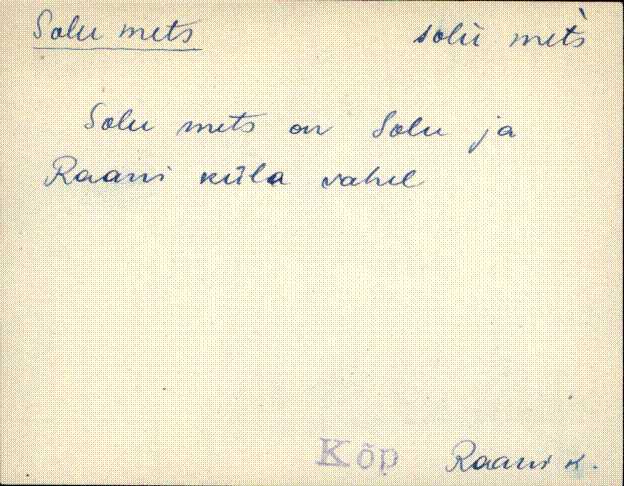 Solu mets solù met̀s
Solu mets on Solu ja
Raani küla vahel
Kõp Raani k.